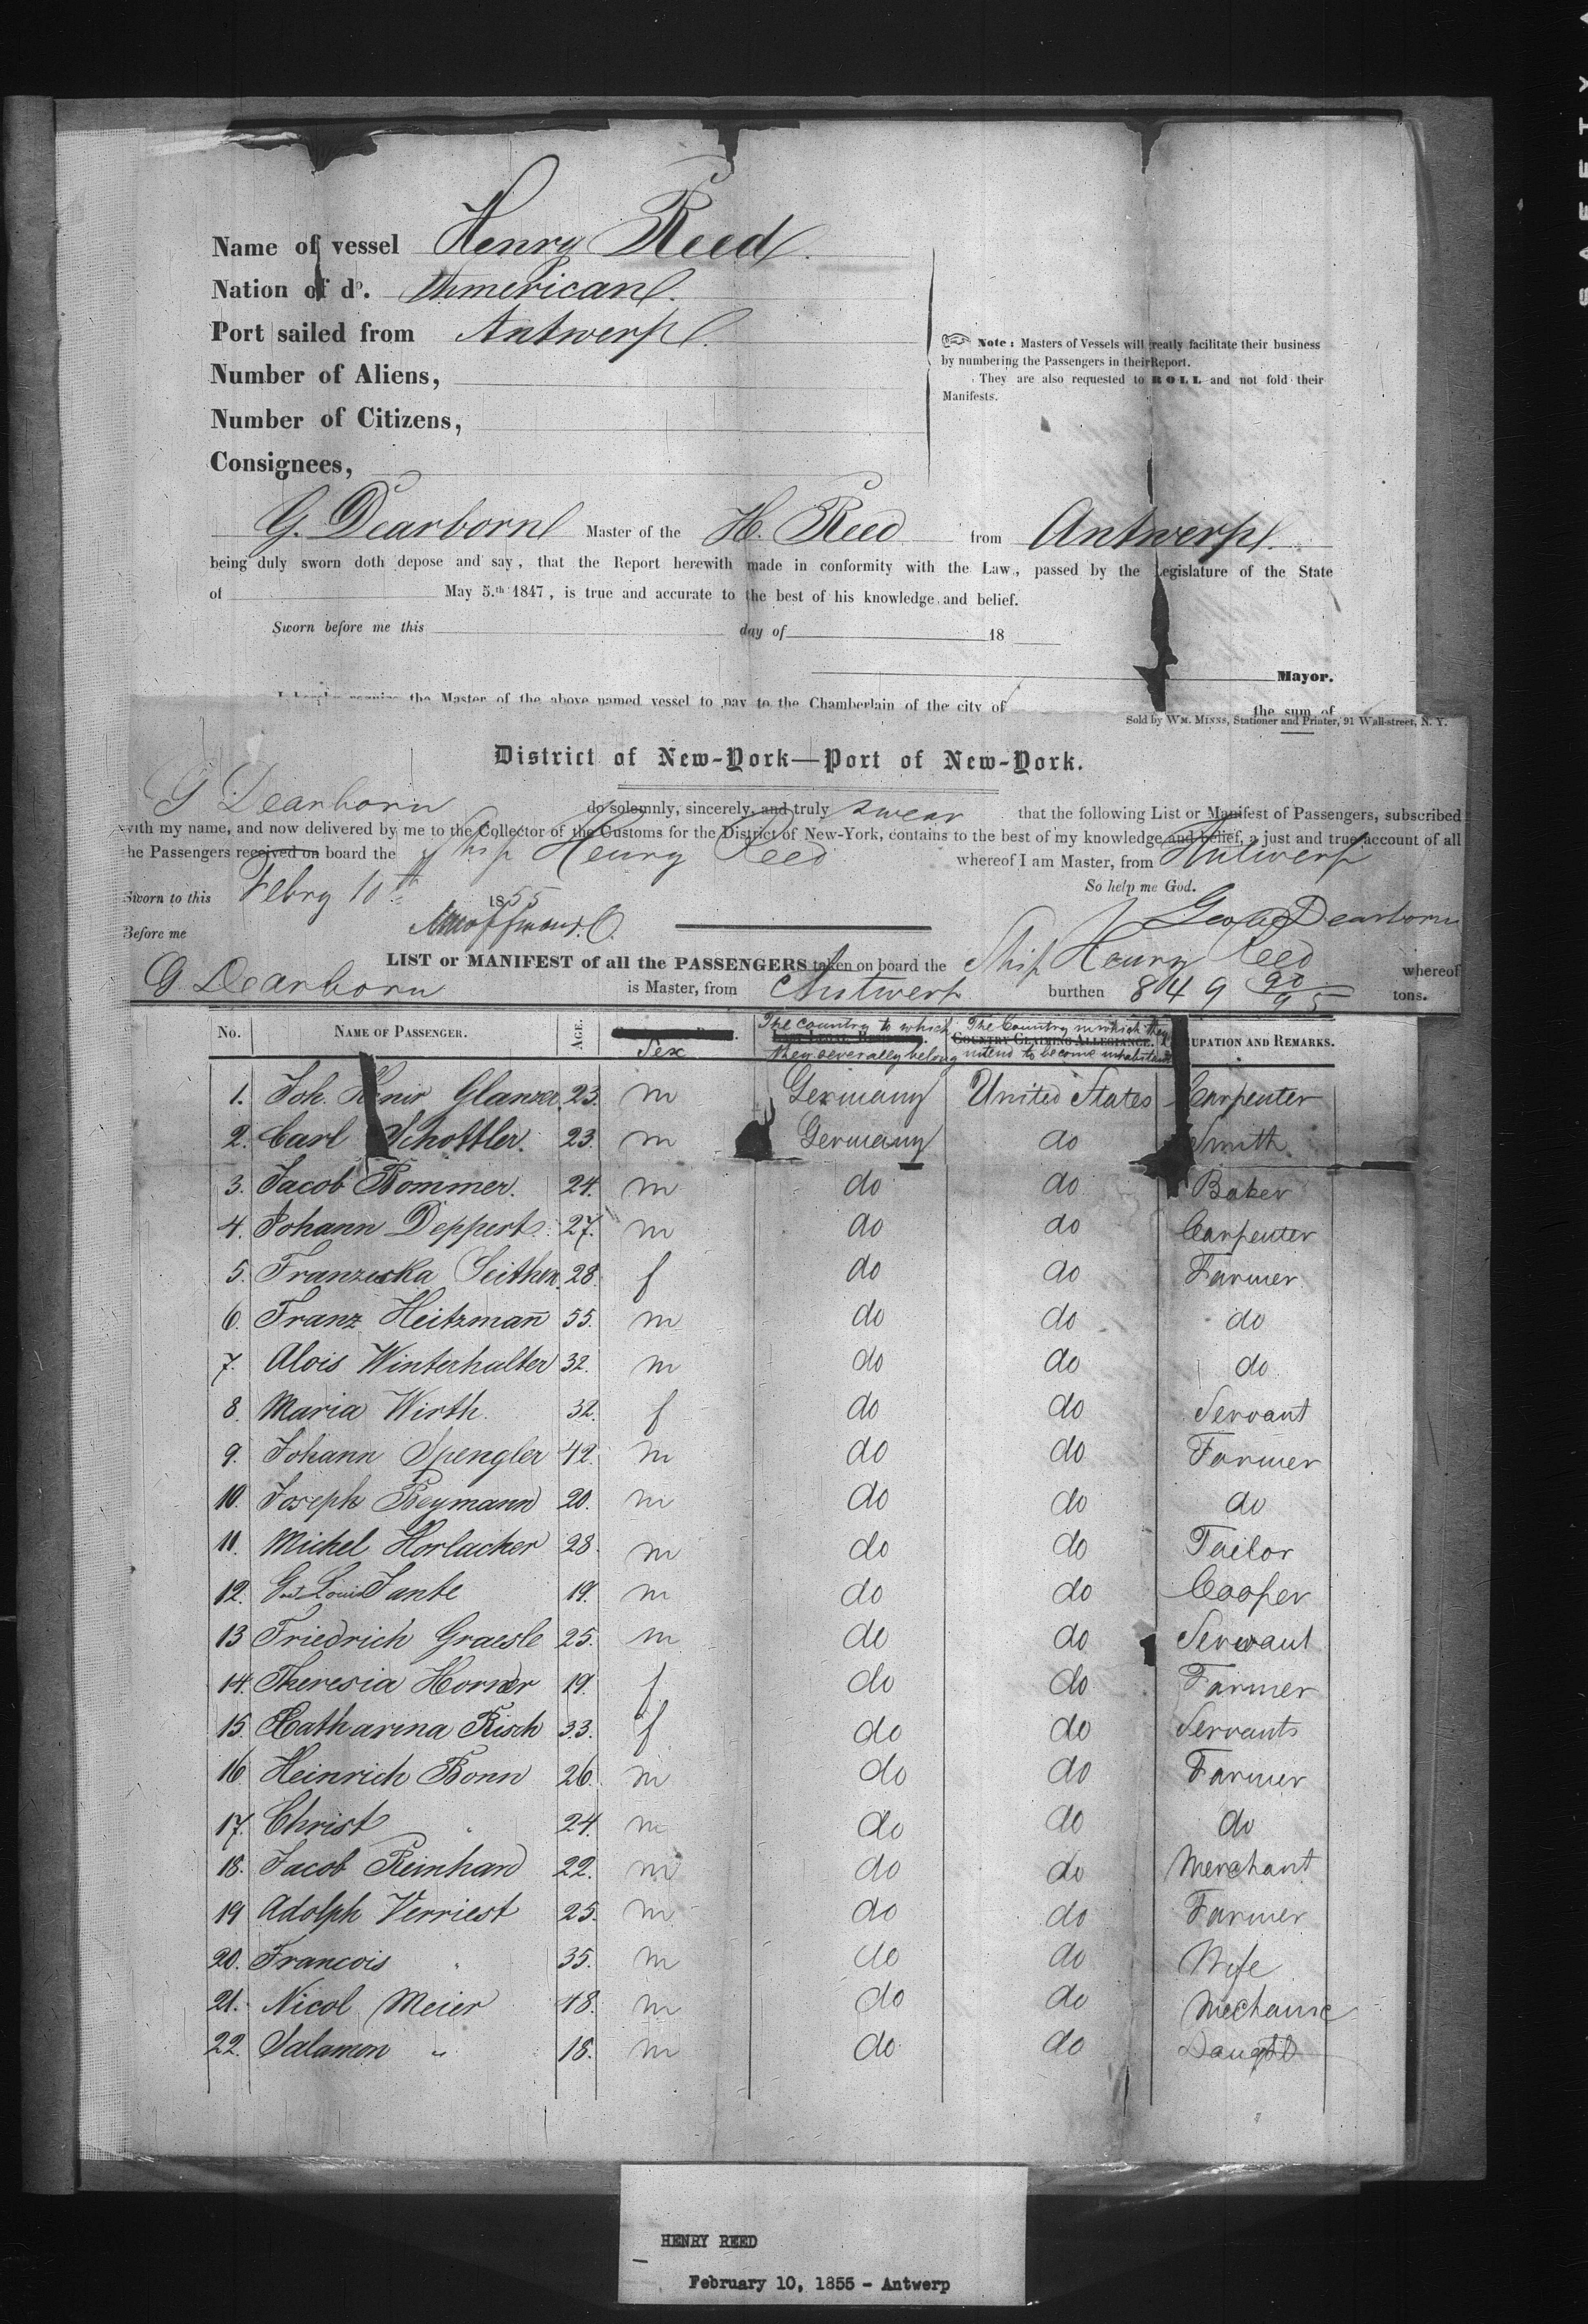 SAFETY
Name of vessel Henry Reed.
Nation of do. American.
Port sailed from Antwerp.
Number of Aliens,
Number of Citizens,
Consignees,
Note: Masters of Vessels will greatly facilitate their business
by numbering the Passengers in their Report.
They are also requested to ROLL and not fold their
Manifests.
G. Dearborn Master of the H. Reed from Antwerp.
being duly sworn doth depose and say, that the Report herewith made in conformity with the Law, passed by the Legislature of the State
of May 5.th 1847, is true and accurate to the best of his knowledge and belief.
Sworn before me this day of 18
Mayor.
I hereby require the Master of the above named vessel to pay to the Chamberlain of the city of the sum of
Sold by WM. MINNS, Stationer and Printer, 91 Wall-street, N. Y.
District of New-York—Port of New-York.
G Dearborn do solemnly, sincerely, and truly swear that the following List or Manifest of Passengers, subscribed
with my name, and now delivered by me to the Collector of the Customs for the District of New-York, contains to the best of my knowledge and belief, a just and true account of all
the Passengers received on board the Ship Henry Reed whereof I am Master, from Antwerp
So help me God.
Sworn to this Febry 10th 1855
Before me Geo Dearborn
LIST or MANIFEST of all the PASSENGERS taken on board the Ship Henry Reed whereof
G. Dearborn is Master, from Antwerp burthen 849 90/95 tons.
No. NAME OF PASSENGER. AGE. Sex The country to which they severally belong COUNTRY CLAIMING ALLEGIANCE. The Country in which they intend to become inhabitants OCCUPATION AND REMARKS.
1. Joh. Glanzer 23. m Germany United States Carpenter
2. Carl Schottler. 23. m Germany do Smith.
3. Jacob Bommer. 24. m do do Baker
4. Johann Deppert. 27. m do do Carpenter
5. Franziska Seither 28. f do do Farmer.
6. Franz Heitzmañ 55. m do do do
7. Alois Winterhalter 32. m do do do
8. Maria Wirth. 32. f do do Servant
9. Johann Spengler 42. m do do Farmer
10. Joseph Reymann 20. m do do do
11. Michel Horlacher 28. m do do Tailor
12. Louis Jante 19. m do do Cooper
13 Friedrich Graesle 25. m do do Servant
14. Theresia Horner 19. f do do Farmer
15. Catharina Risch 33. f do do Servants
16. Heinrich Bonn 26. m do do Farmer
17. Christ " 24. m do do do
18. Jacob Reinhard 22. m do do Merchant
19 Adolph Verriest 25. m do do Farmer
20. Francois " 35. m do do Wife
21. Nicol Meier 48. m do do Mechanic
22. Salamon " 18. m do do Daught
HENRY REED
February 10, 1855 - Antwerp